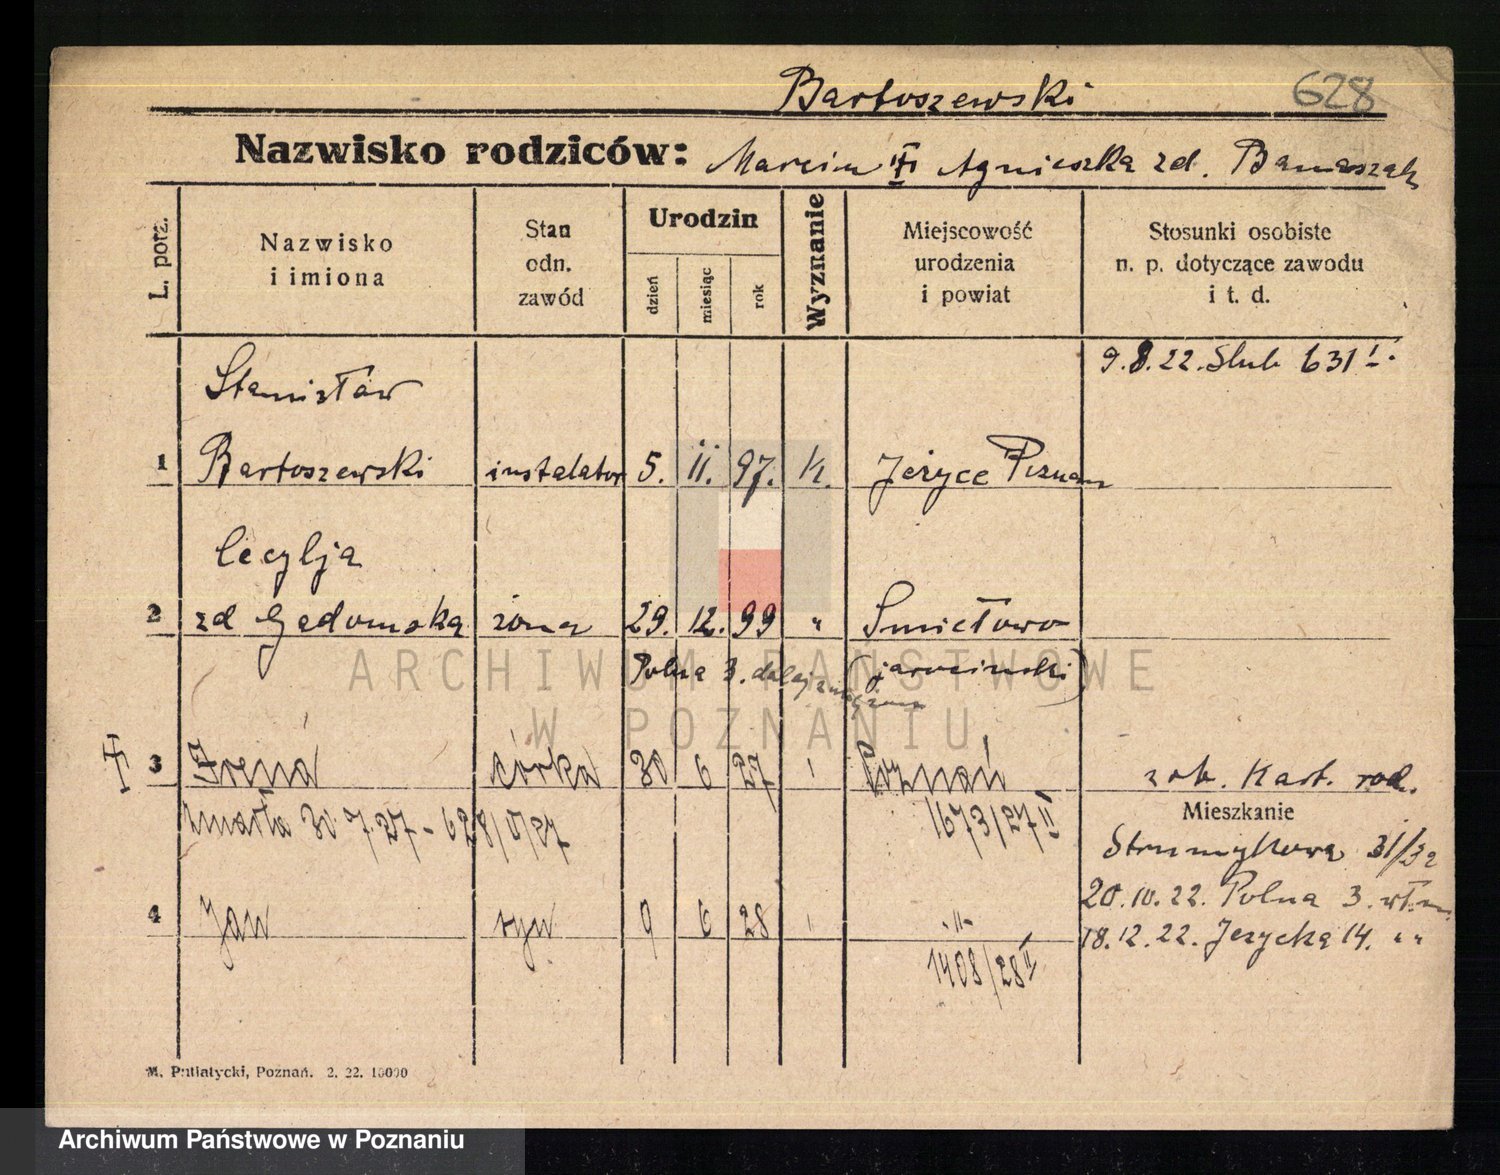 Bartoszewski 628
Nazwisko rodziców: Marcin Agnieszka zd. Banaszak
L. porz.
Nazwisko i imiona
Stan odn. zawód
Urodzin
dzień
miesiąc
rok
Wyznanie
Miejscowość urodzenia i powiat
Stosunki osobiste n. p. dotyczące zawodu i t. d.
9.8.22. Slub 631 I.
Stanisław
1 Bartoszewski instalator 5. 11. 97. K. Jeżyce Poznań
Cecylja
2 zd Gadomska żona 29. 12. 99 " Smiełowo
Polna 3. dalej (jarociński)
3 Irena córka 30 6 27 Poznań zob. Kart. rod.
zmarła 30.7.27 - 628/ /27 1673/27 II
Mieszkanie
Strumykowa 31/32
20.10.22. Polna 3.
4 Jan syn 9 6 28 -"-
18.12.22. Jerzycka 14. "
1408/28 II
M. Putiatycki, Poznań. 2. 22. 10000
ARCHIWUM PAŃSTWOWE
W POZNANIU
Archiwum Państwowe w Poznaniu